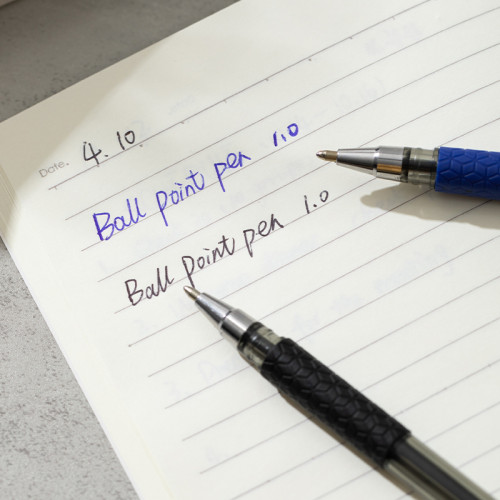 Date. 4.10
Ball point pen 1.0
Ball point pen 1.0